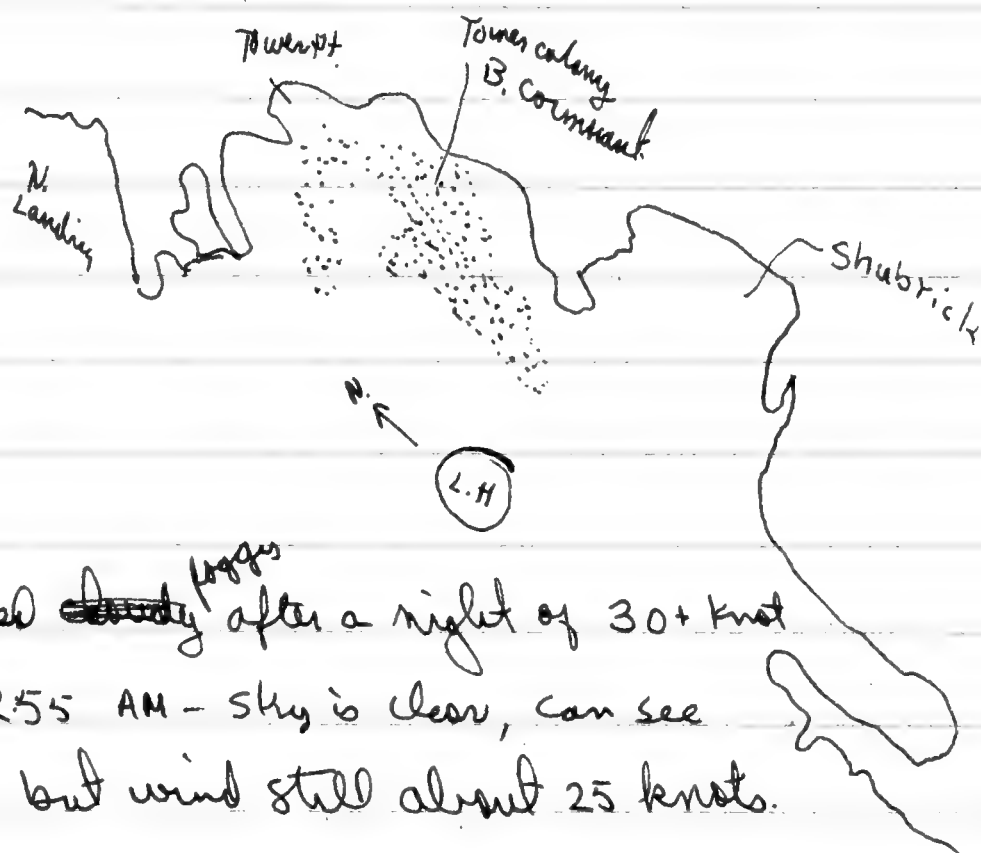 Tower pt.
Tower colony
B. Cormorant.
N.
Landing
Shubrick
N.
L.H
foggy
ed cloudy after a night of 30+ knot
2:55 AM - sky is clear, can see
but wind still about 25 knots.